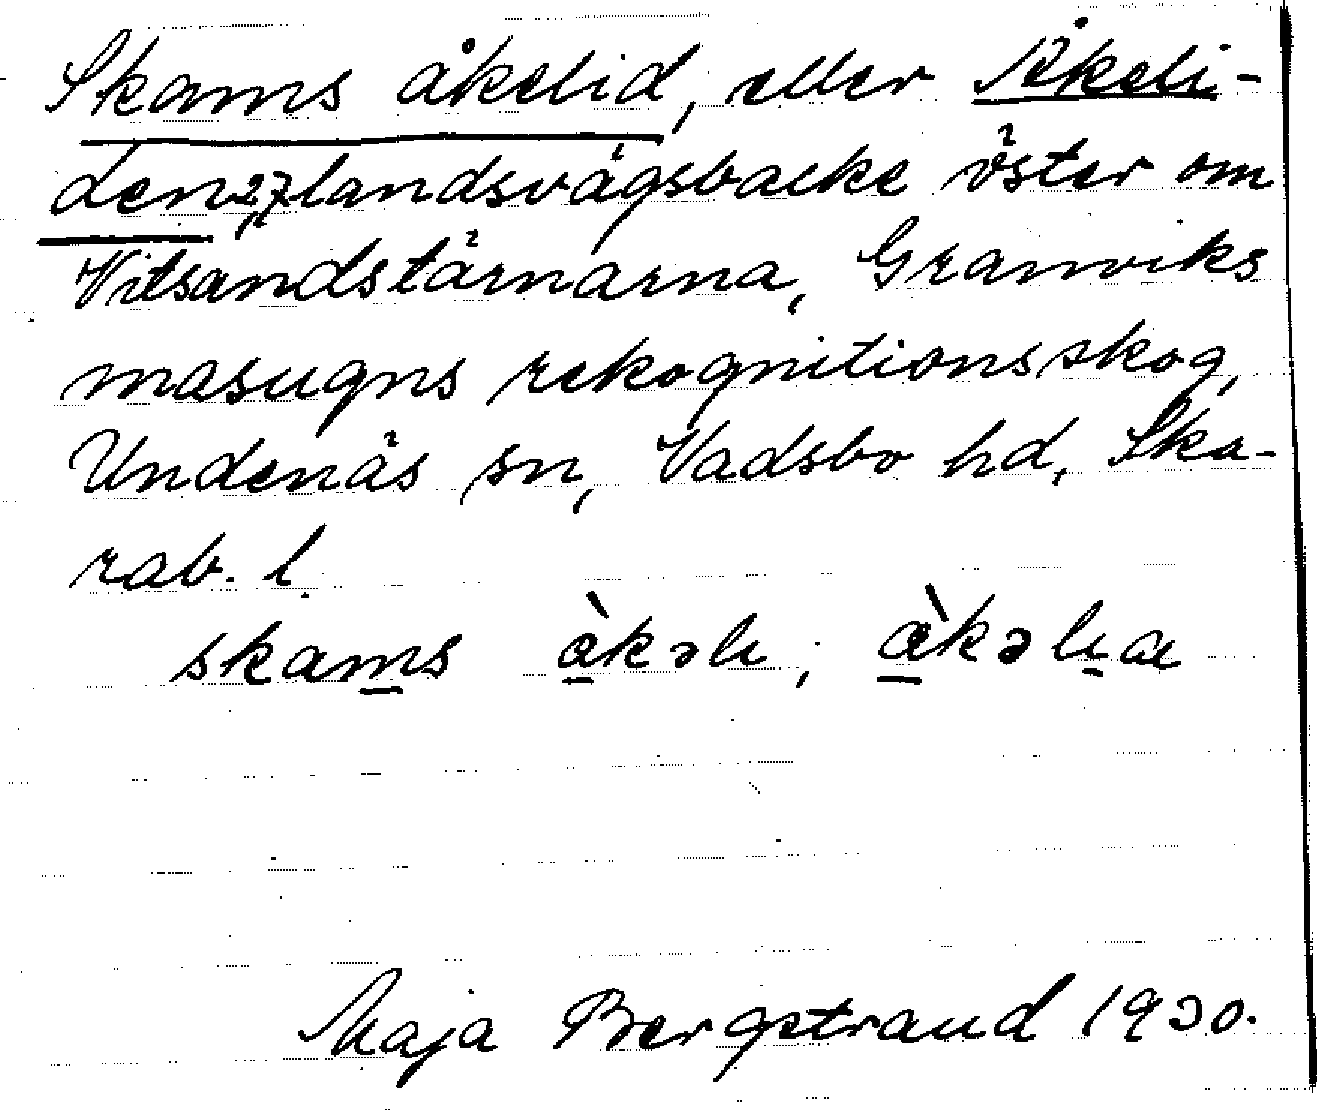 Skams åkelid, eller Åkeli-
den, 27, landsvägsbacke öster om
Vitsandstärnarna, Granviks
masugns rekognitionsskog,
Undenäs sn, Vadsbo hd, Ska-
rab. l.
skams
Maja Bergstrand 1930.